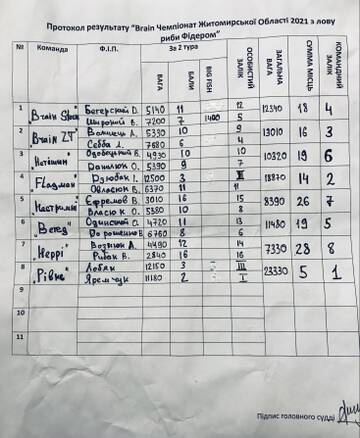 Протокол результату "Brain Чемпіонат Житомирської Області 2021 з лову
риби Фідером"
№ Команда Ф.І.П. За 2 тура
ВАГА БАЛИ BIG FISH ОСОБИСТИЙ ЗАЛІК ЗАГАЛЬНА ВАГА СУММА МІСЦЬ КОМАНДНИЙ ЗАЛІК
1 "Brain" Багерский D. 5140 11 12 12340 18 4
Широкий В. 7200 7 1400 5
2 "Brain ZT" 5330 10 9 13010 16 3
Седда А. 7680 6 4
3 "Нетішин" 4930 10 10 10320 19 6
Данилюк О. 5390 9 7
4 "Flagman" Р. 12500 3 II 18870 14 2
Власюк В. 6370 11 11
5 Єфремов В. 3010 16 15 8390 26 7
Власюк О. 5380 10 8
6 "Берег" О. 4720 11 13 11480 19 5
Дорошенко В. 6760 8 6
7 "Неррі" Вознюк А. 4490 12 14 7330 28 8
Рибак В. 2840 16 16
8 "Рівне" Лобяк 12150 3 III 23330 5 1
Яремчук 11180 2 I
9
10
11
Підпис головного судді